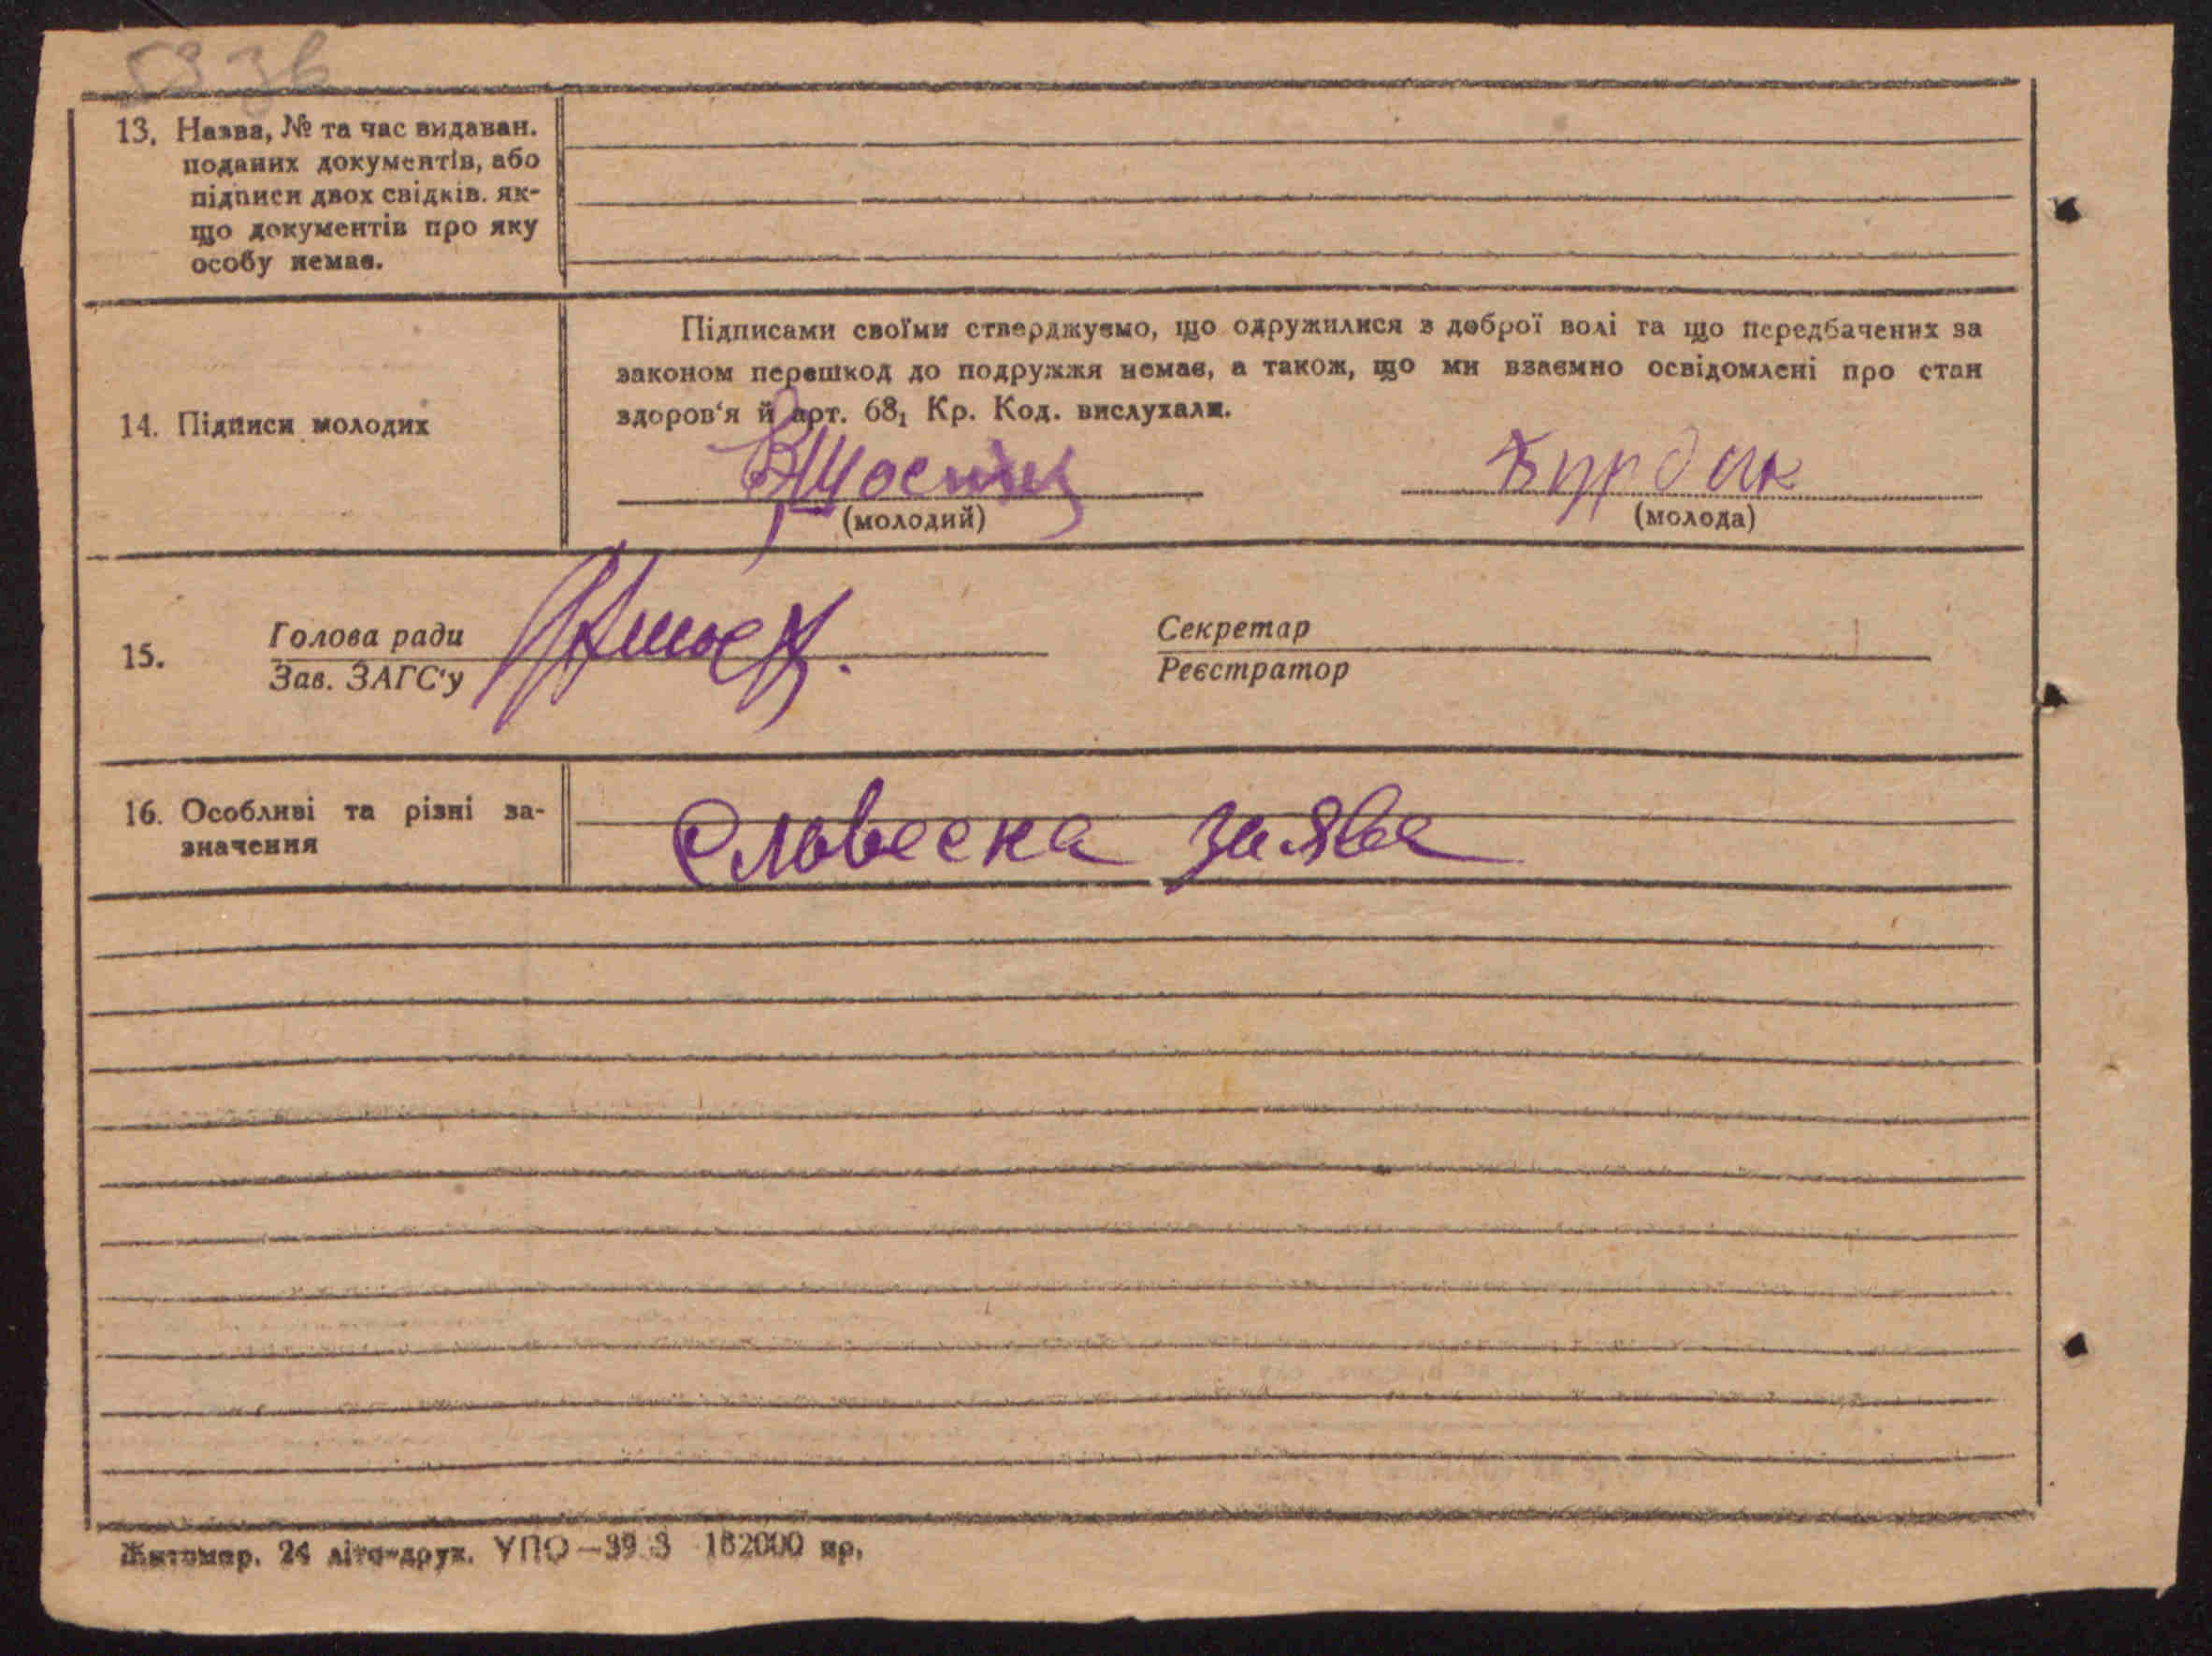 53 зв
13. Назва, № та час видаван.
поданих документів, або
підписи двох свідків. як-
що документів про яку
особу немає.
Підписами своїми стверджуємо, що одружилися з доброї волі та що передбачених за
законом перешкод до подружжя немає, а також, що ми взаємно освідомлені про стан
здоров'я й арт. 68₁ Кр. Код. вислухали.
14. Підписи молодих
Бурдик
(молодий) (молода)
15. Голова ради Секретар
Зав. ЗАГС'у Реєстратор
16. Особливі та різні за-
значення
Словесна заява
Житомир. 24 літо-друк. УПО—39 З 182000 пр.